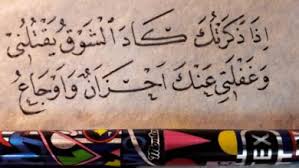 اِذَا ذَكَرْتُكَ كَادَ الشَّوْقُ يَقْتُلُنِي
وَغَفْلَتِي عَنْكَ اَحْزَانٌ وَاَوْجَاعُ